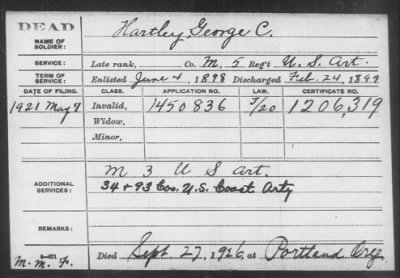 DEAD
NAME OF SOLDIER: Hartley George C.
SERVICE: Late rank, Co. M, 5 Reg't U. S. Art.
TERM OF SERVICE: Enlisted June 4, 1898 Discharged Feb. 24, 1899
DATE OF FILING. CLASS. APPLICATION NO. LAW. CERTIFICATE NO.
1921 May 9 Invalid, 1450836 5/20 1206,319
Widow,
Minor,
ADDITIONAL SERVICES: M 3 U S Art.
34 + 93 Cos. U.S. Coast Arty
REMARKS:
m. m. F. Died Sept. 27, 1926, at Portland Oreg